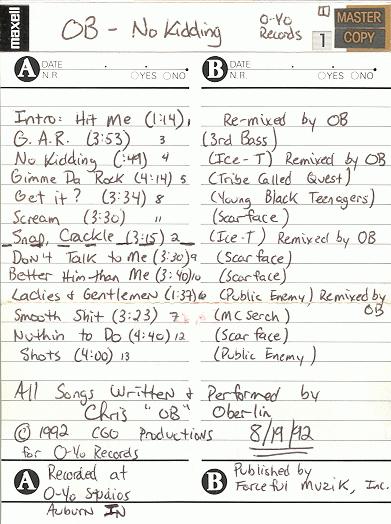 maxell
OB - No Kidding
O-Yo
Records
1
MASTER
COPY
A DATE
N.R. YES NO
B DATE
N.R. YES NO
Intro: Hit Me (1:14) 1 Re-mixed by OB
G.A.R. (3:53) 3 (3rd Bass)
No Kidding (:49) 4 (Ice-T) Remixed by OB
Gimme Da Rock (4:14) 5 (Tribe Called Quest)
Get it? (3:34) 8 (Young Black Teenagers)
Scream (3:30) 11 (Scarface)
Snap, Crackle (3:15) 2 (Ice-T) Remixed by OB
Don't Talk to Me (3:30) 9 (Scarface)
Better Him than Me (3:40) 10 (Scarface)
Ladies & Gentlemen (1:37) 6 (Public Enemy) Remixed by
OB
Smooth Shit (3:23) 7 (MC Serch)
Nuthin to Do (4:40) 12 (Scarface)
Shots (4:00) 13 (Public Enemy)
All Songs Written & Performed by
Chris "OB" Oberlin
© 1992 CGO Productions 8/19/92
for O-Yo Records
A Recorded at
O-Yo Studios
Auburn IN
B Published by
Forceful Muzik, Inc.